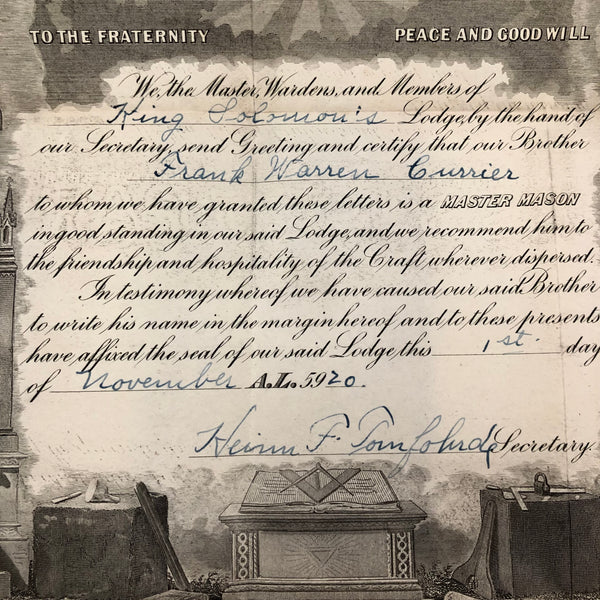 TO THE FRATERNITY PEACE AND GOOD WILL
We, the Master, Wardens, and Members of
King Solomon's Lodge, by the hand of
our Secretary, send Greeting and certify that our Brother
Frank Warren Currier
to whom we have granted these letters is a MASTER MASON
in good standing in our said Lodge, and we recommend him to
the friendship and hospitality of the Craft wherever dispersed.
In testimony whereof we have caused our said Brother
to write his name in the margin hereof and to these presents
have affixed the seal of our said Lodge this 1st day
of November A.L. 5920.
F. Secretary.